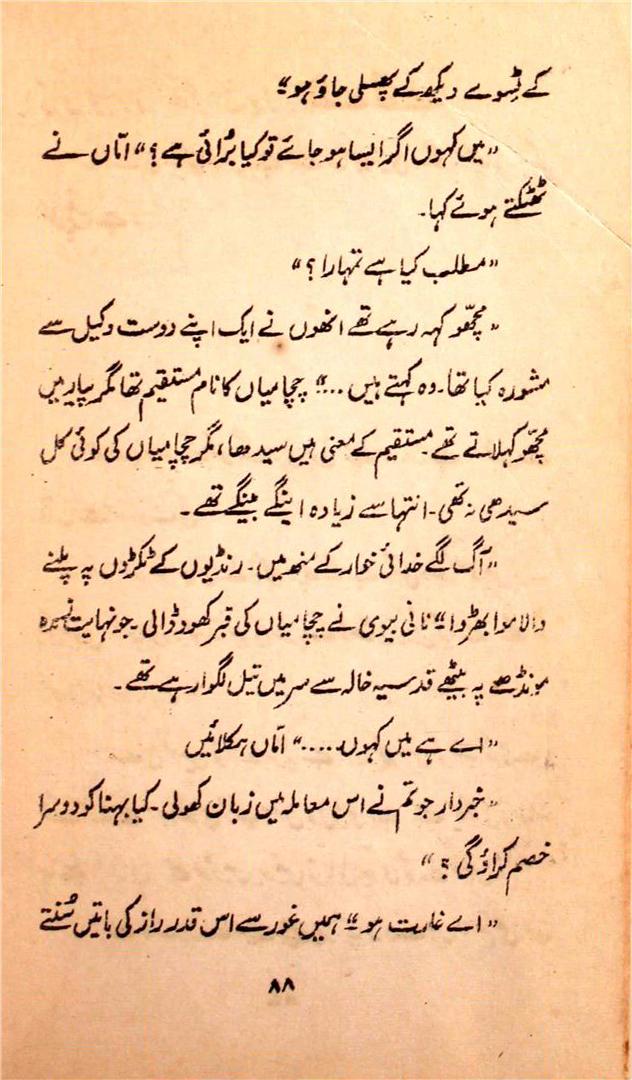 کے ٹسوے دیکھ کے پھسلی جاؤ ہو“
”میں کہوں اگر ایسا ہو جائے تو کیا بُرائی ہے؟“ امّاں نے
ٹھٹکتے ہوئے کہا۔
”مطلب کیا ہے تمہارا؟“
”مچھّو کہہ رہے تھے انھوں نے ایک اپنے دوست وکیل سے
مشورہ کیا تھا۔ وہ کہتے ہیں ...“ چچا میاں کا نام مستقیم تھا مگر پیار میں
مچھّو کہلاتے تھے۔ مستقیم کے معنی ہیں سیدھا، مگر چچا میاں کی کوئی کل
سیدھی نہ تھی۔ انتہا سے زیادہ اینگے بینگے تھے۔
”آگ لگے خدائی خوار کے منھ میں۔ رنڈیوں کے ٹکڑوں پہ پلنے
والا موا بھڑوا“ نانی بیوی نے چچا میاں کی قبر کھود ڈالی۔ جو نہایت
مونڈھے پہ بیٹھے قدسیہ خالہ سے سر میں تیل لگوا رہے تھے۔
”اے ہے میں کہوں.....“ امّاں ہکلائیں
”خبردار جو تم نے اس معاملہ میں زبان کھولی۔ کیا بہنا کو دوسرا
خصم کراؤ گی؟“
”اے غارت ہو“ ہمیں غور سے اس قدر راز کی باتیں سُنتے
۸۸